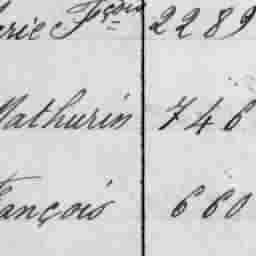 arie Fçois 2289
Mathurin 746
François 660